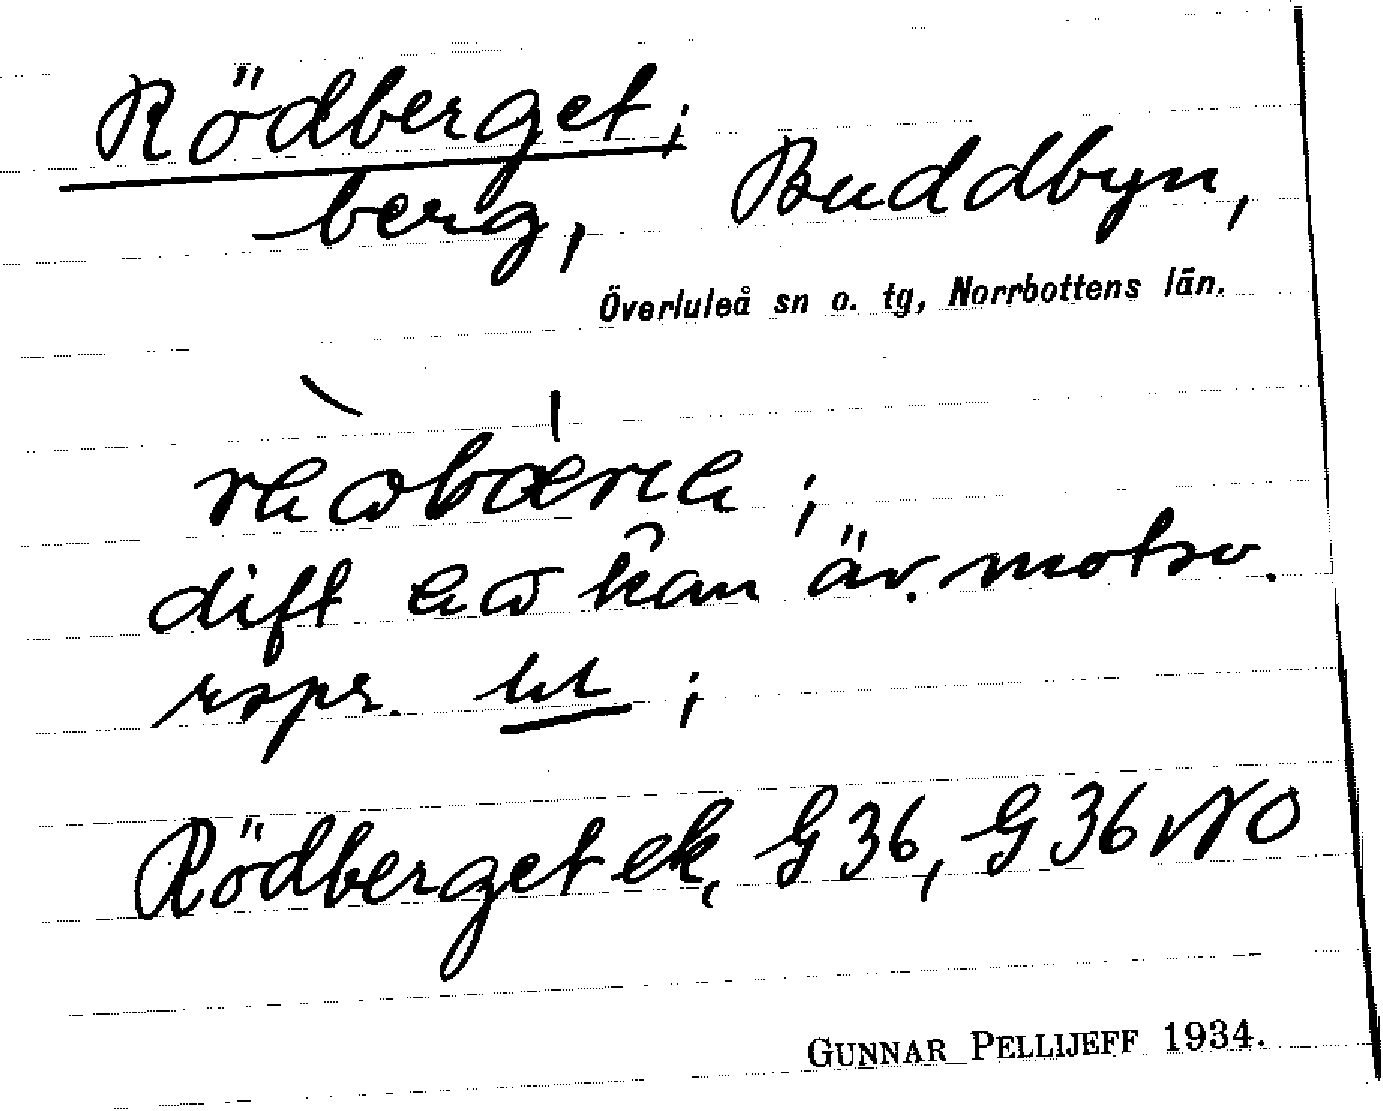 Rödberget;
berg, Buddbyn,
Överluleå sn o. tg, Norrbottens län.
dift kan äv. motsv.
rspr. ;
Rödberget ek, G 36, G 36 NO
GUNNAR PELLIJEFF 1934.